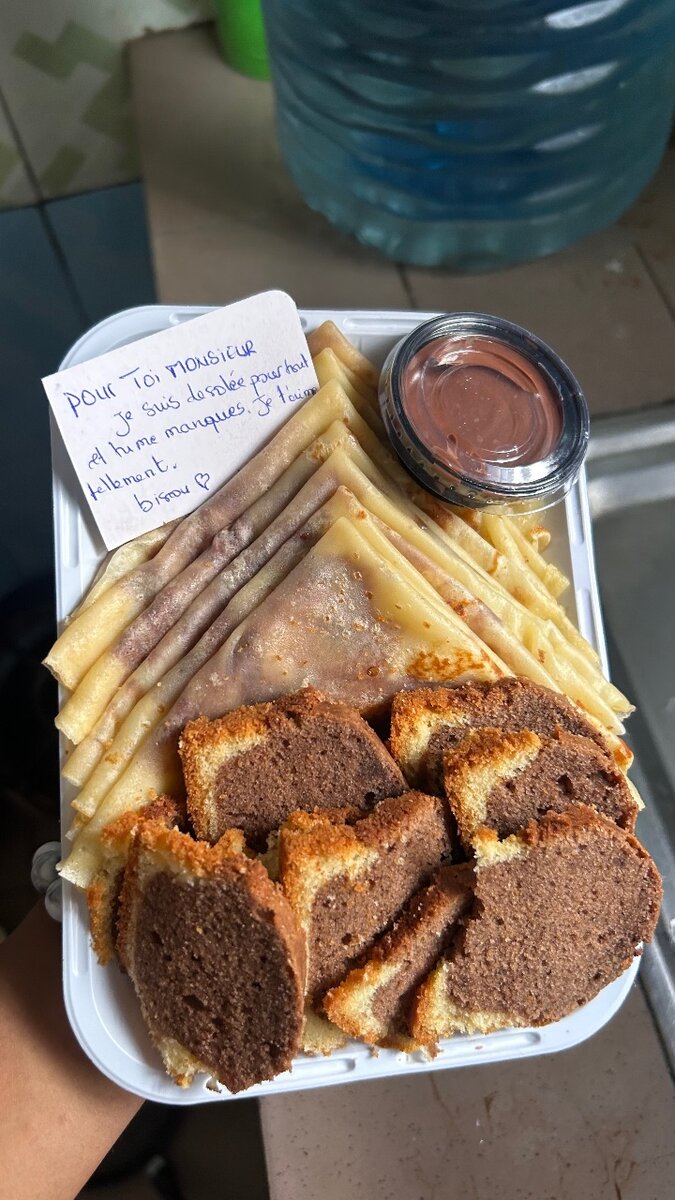 POUR TOI MONSIEUR
Je suis desolée pour tout
et tu me manques. Je t'aime
tellement.
bisou ♡